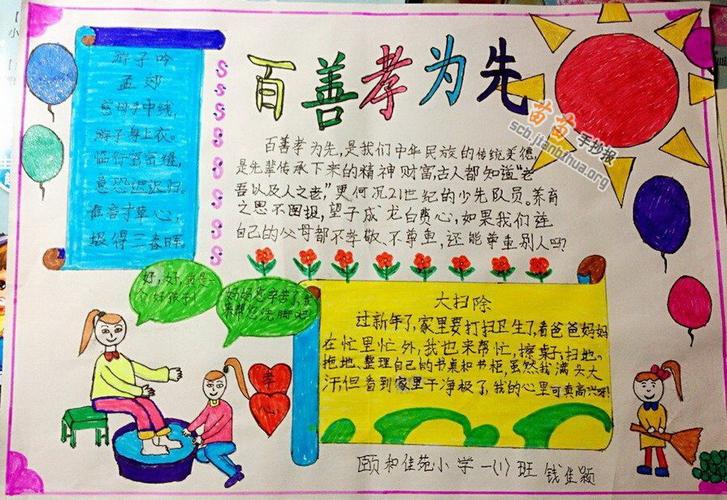 百善孝为先
苗苗手抄报
scb.jianbihua.org
游子吟
孟郊
慈母手中线,
游子身上衣。
临行密密缝,
意恐迟迟归。
谁言寸草心,
报得三春晖。
百善孝为先,是我们中华民族的传统美德,
是先辈传承下来的精神财富古人都知道“老
吾以及人之老,”更何况21世纪的少先队员。养育
之恩不图报,望子成龙白费心,如果我们连
自己的父母都不孝敬、不尊重,还能尊重别人吗?
好,好,我是
个好孩子!
妈妈您辛苦了,我
来帮您洗脚吧!
孝
心
大扫除
过新年了,家里要打扫卫生了,看爸爸妈妈
在忙里忙外,我也来帮忙,擦桌子,扫地。
拖地、整理自己的书桌和书柜,虽然我满头大
汗,但看到家里干净极了,我的心里可真高兴呀!
颐和佳苑小学一(1)班 钱佳颖